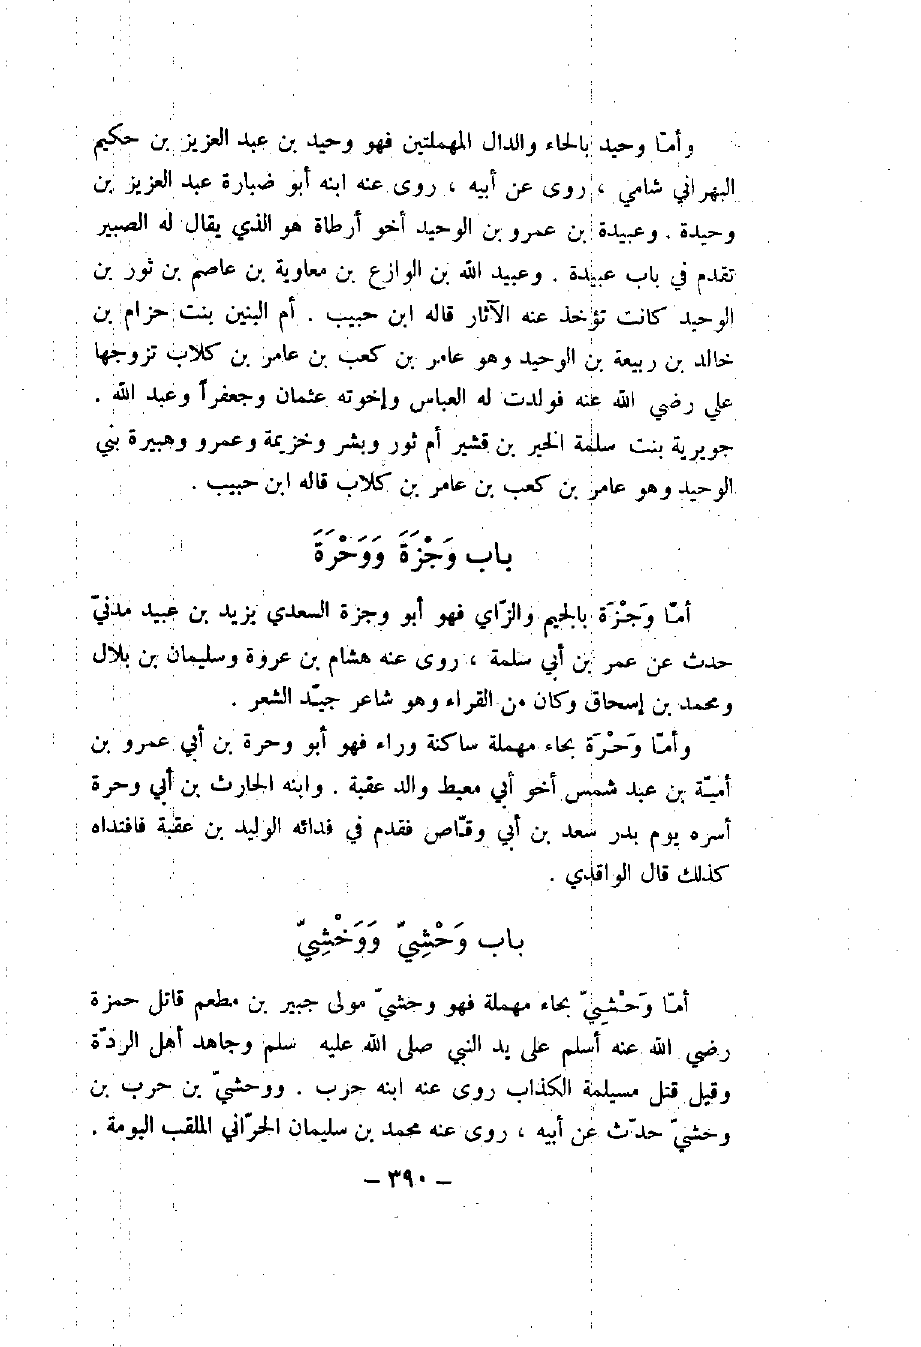 وأمّا وحيد بالحاء والدال المهملتين فهو وحيد بن عبد العزيز بن حكيم
البهراني شامي ، روى عن أبيه ، روى عنه ابنه أبو ضبارة عبد العزيز بن
وحيدة . وعبيدة بن عمرو بن الوحيد أخو أرطاة هو الذي يقال له الصبير
تقدم في باب عبيدة . وعبيد الله بن الوازع بن معاوية بن عاصم بن ثور بن
الوحيد كانت تؤخذ عنه الآثار قاله ابن حبيب . أم البنين بنت حزام بن
خالد بن ربيعة بن الوحيد وهو عامر بن كعب بن عامر بن كلاب تزوجها
علي رضي الله عنه فولدت له العباس وإخوته عثمان وجعفراً وعبد الله .
جويرية بنت سلمة الخير بن قشير أم ثور وبشر وخزيمة وعمرو وهبيرة بني
الوحيد وهو عامر بن كعب بن عامر بن كلاب قاله ابن حبيب .
باب وَجْزَةَ وَوَحْرَةَ
أمّا وَجْزَة بالجيم والزّاي فهو أبو وجزة السعدي يزيد بن عبيد مدنيّ
حدث عن عمر بن أبي سلمة ، روى عنه هشام بن عروة وسليمان بن بلال
ومحمد بن إسحاق وكان من القراء وهو شاعر جيّد الشعر .
وأمّا وَحْرَة بحاء مهملة ساكنة وراء فهو أبو وحرة بن أبي عمرو بن
أميّة بن عبد شمس أخو أبي معيط والد عقبة . وابنه الحارث بن أبي وحرة
أسره يوم بدر سعد بن أبي وقّاص فقدم في فدائه الوليد بن عقبة فافتداه
كذلك قال الواقدي .
باب وَحْشِيّ وَوَخْشِيّ
أمّا وَحْشِيّ بحاء مهملة فهو وحشيّ مولى جبير بن مطعم قاتل حمزة
رضي الله عنه أسلم على يد النبي صلى الله عليه سلم وجاهد أهل الردّة
وقيل قتل مسيلمة الكذاب روى عنه ابنه حرب . ووحشيّ بن حرب بن
وحشيّ حدّث عن أبيه ، روى عنه محمد بن سليمان الحرّاني الملقب البومة .
– ٣٩٠ –